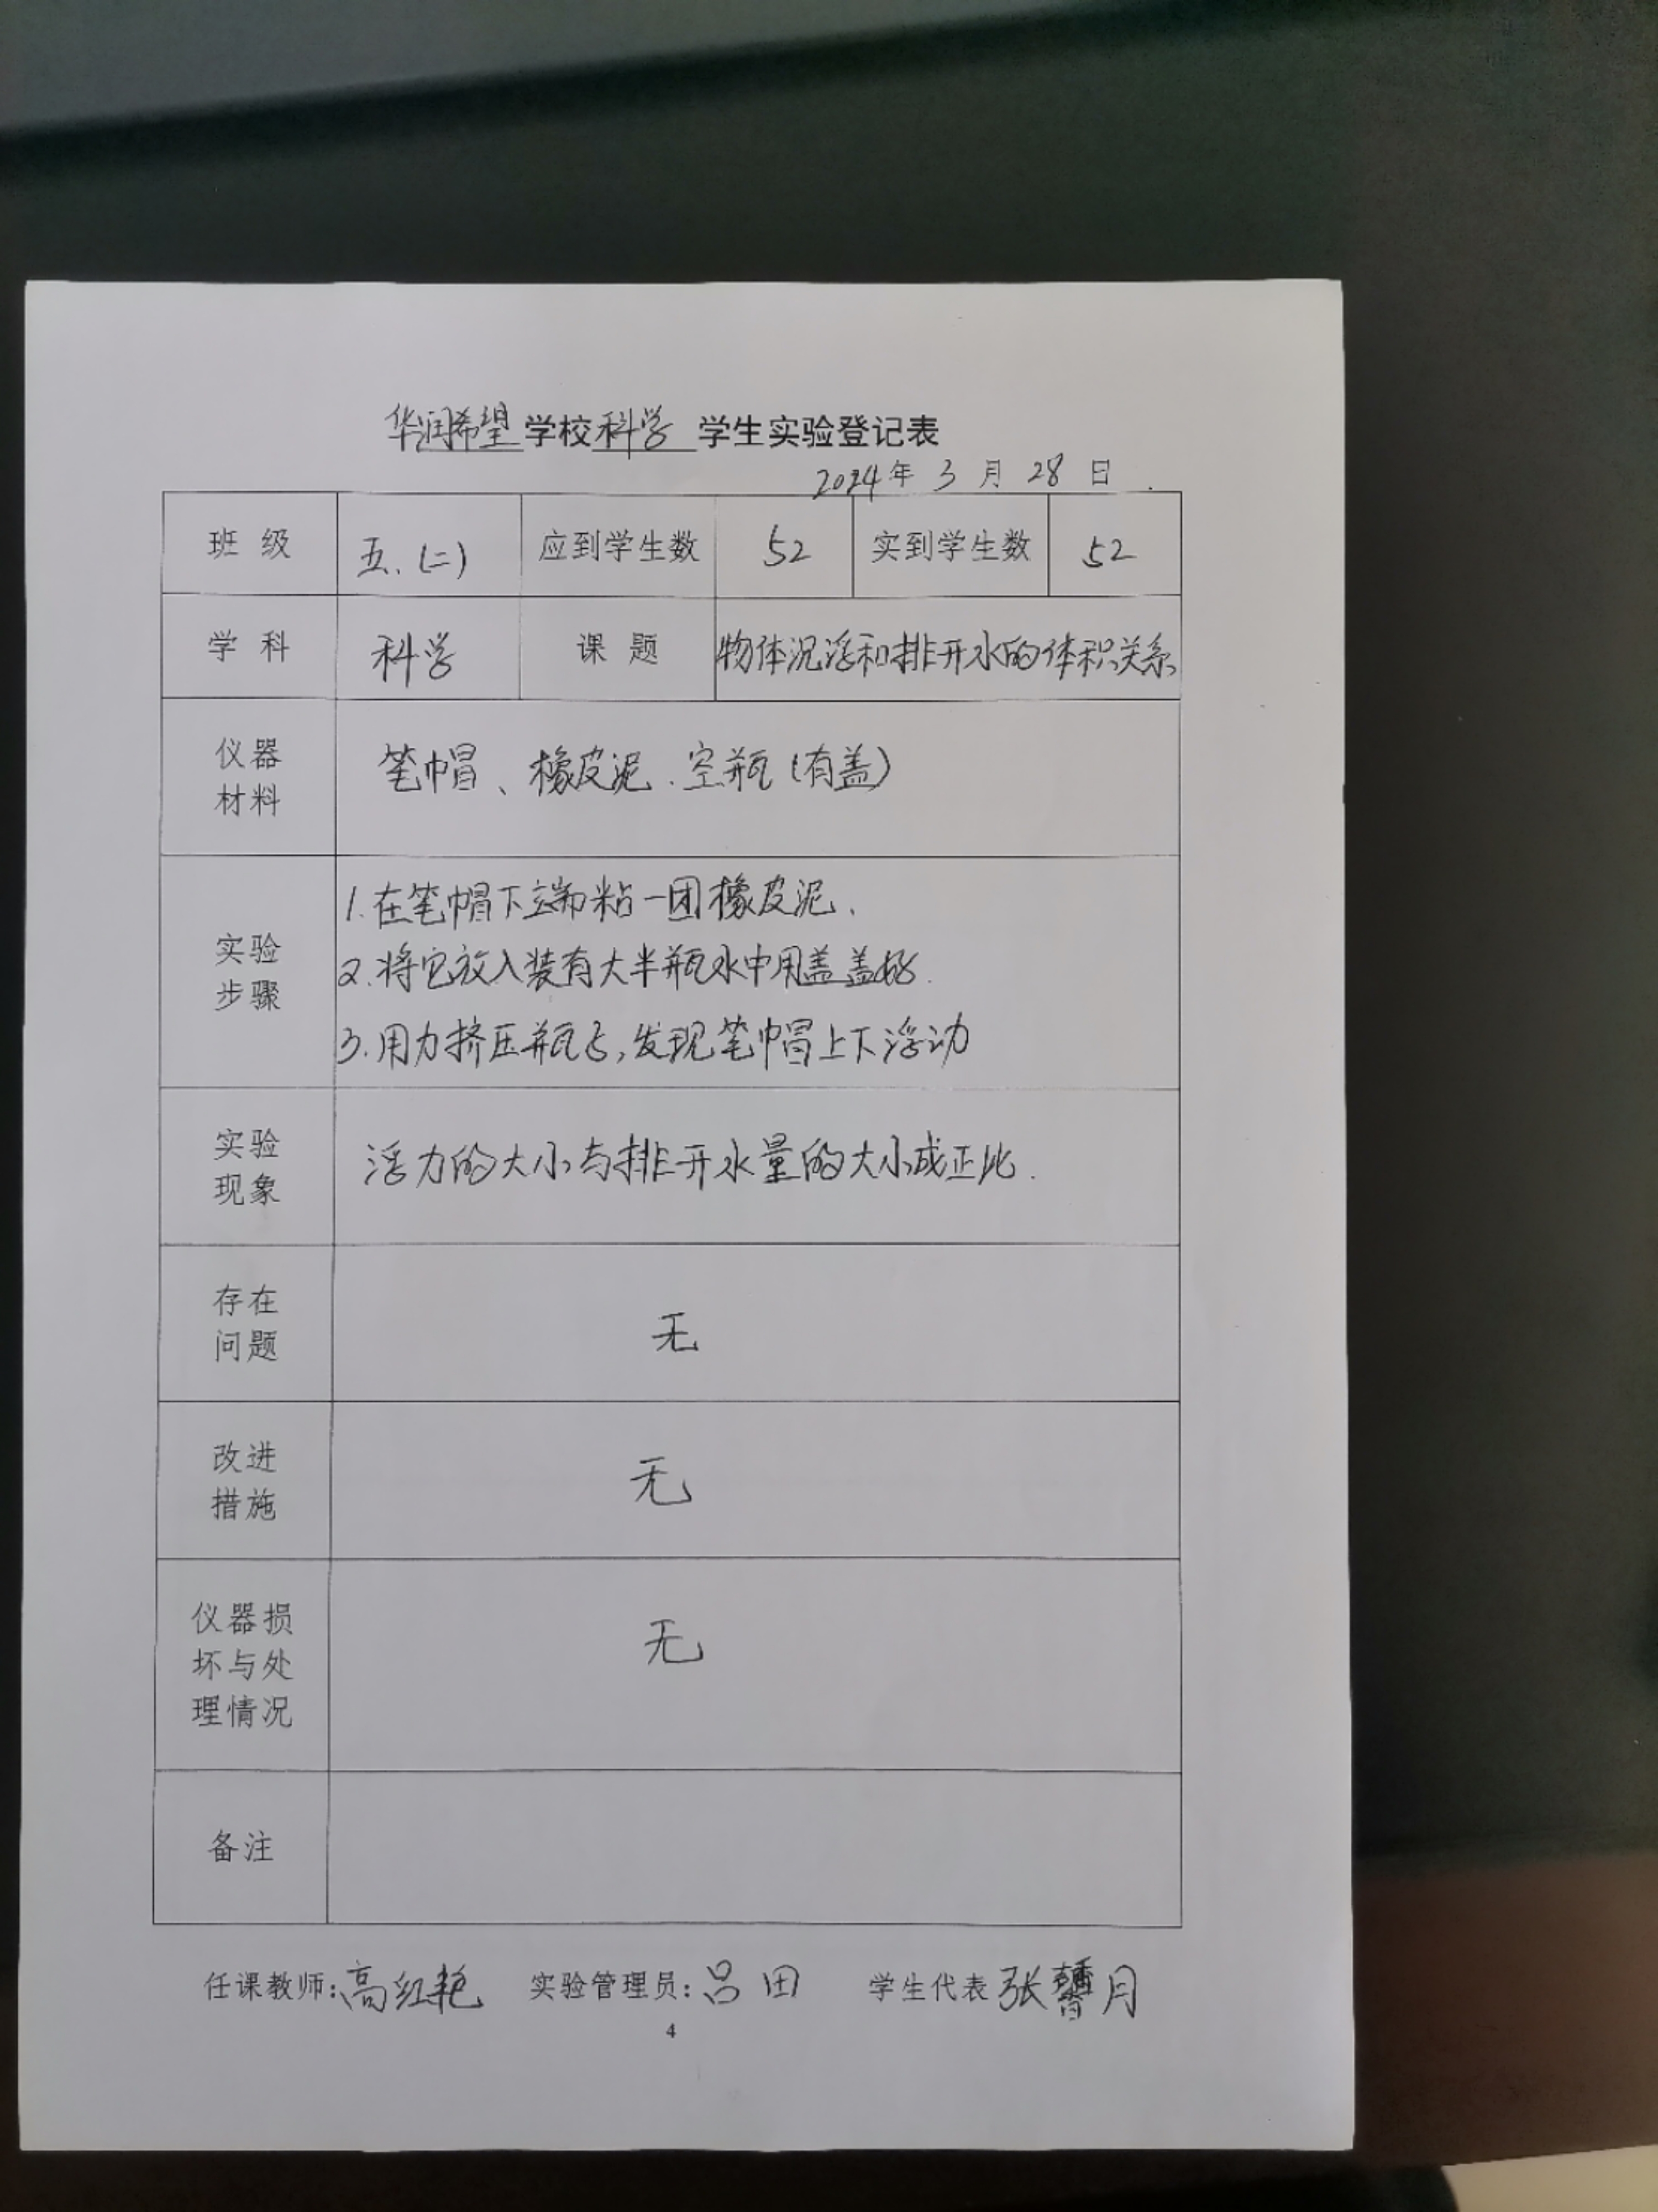 华润希望学校科学 学生实验登记表
2024年 3 月 28 日
班 级 五.(二) 应到学生数 52 实到学生数 52
学 科 科学 课 题 物体沉浮和排开水的体积关系
仪器
材料
笔帽、橡皮泥.空瓶(有盖)
实验
步骤
1.在笔帽下端粘一团橡皮泥.
2.将它放入装有大半瓶水中用盖盖好.
3.用力挤压瓶子,发现笔帽上下浮动
实验
现象
浮力的大小与排开水量的大小成正比.
存在
问题
无
改进
措施
无
仪器损
坏与处
理情况
无
备注
任课教师:高红艳 实验管理员:吕田 学生代表 张馨月
4